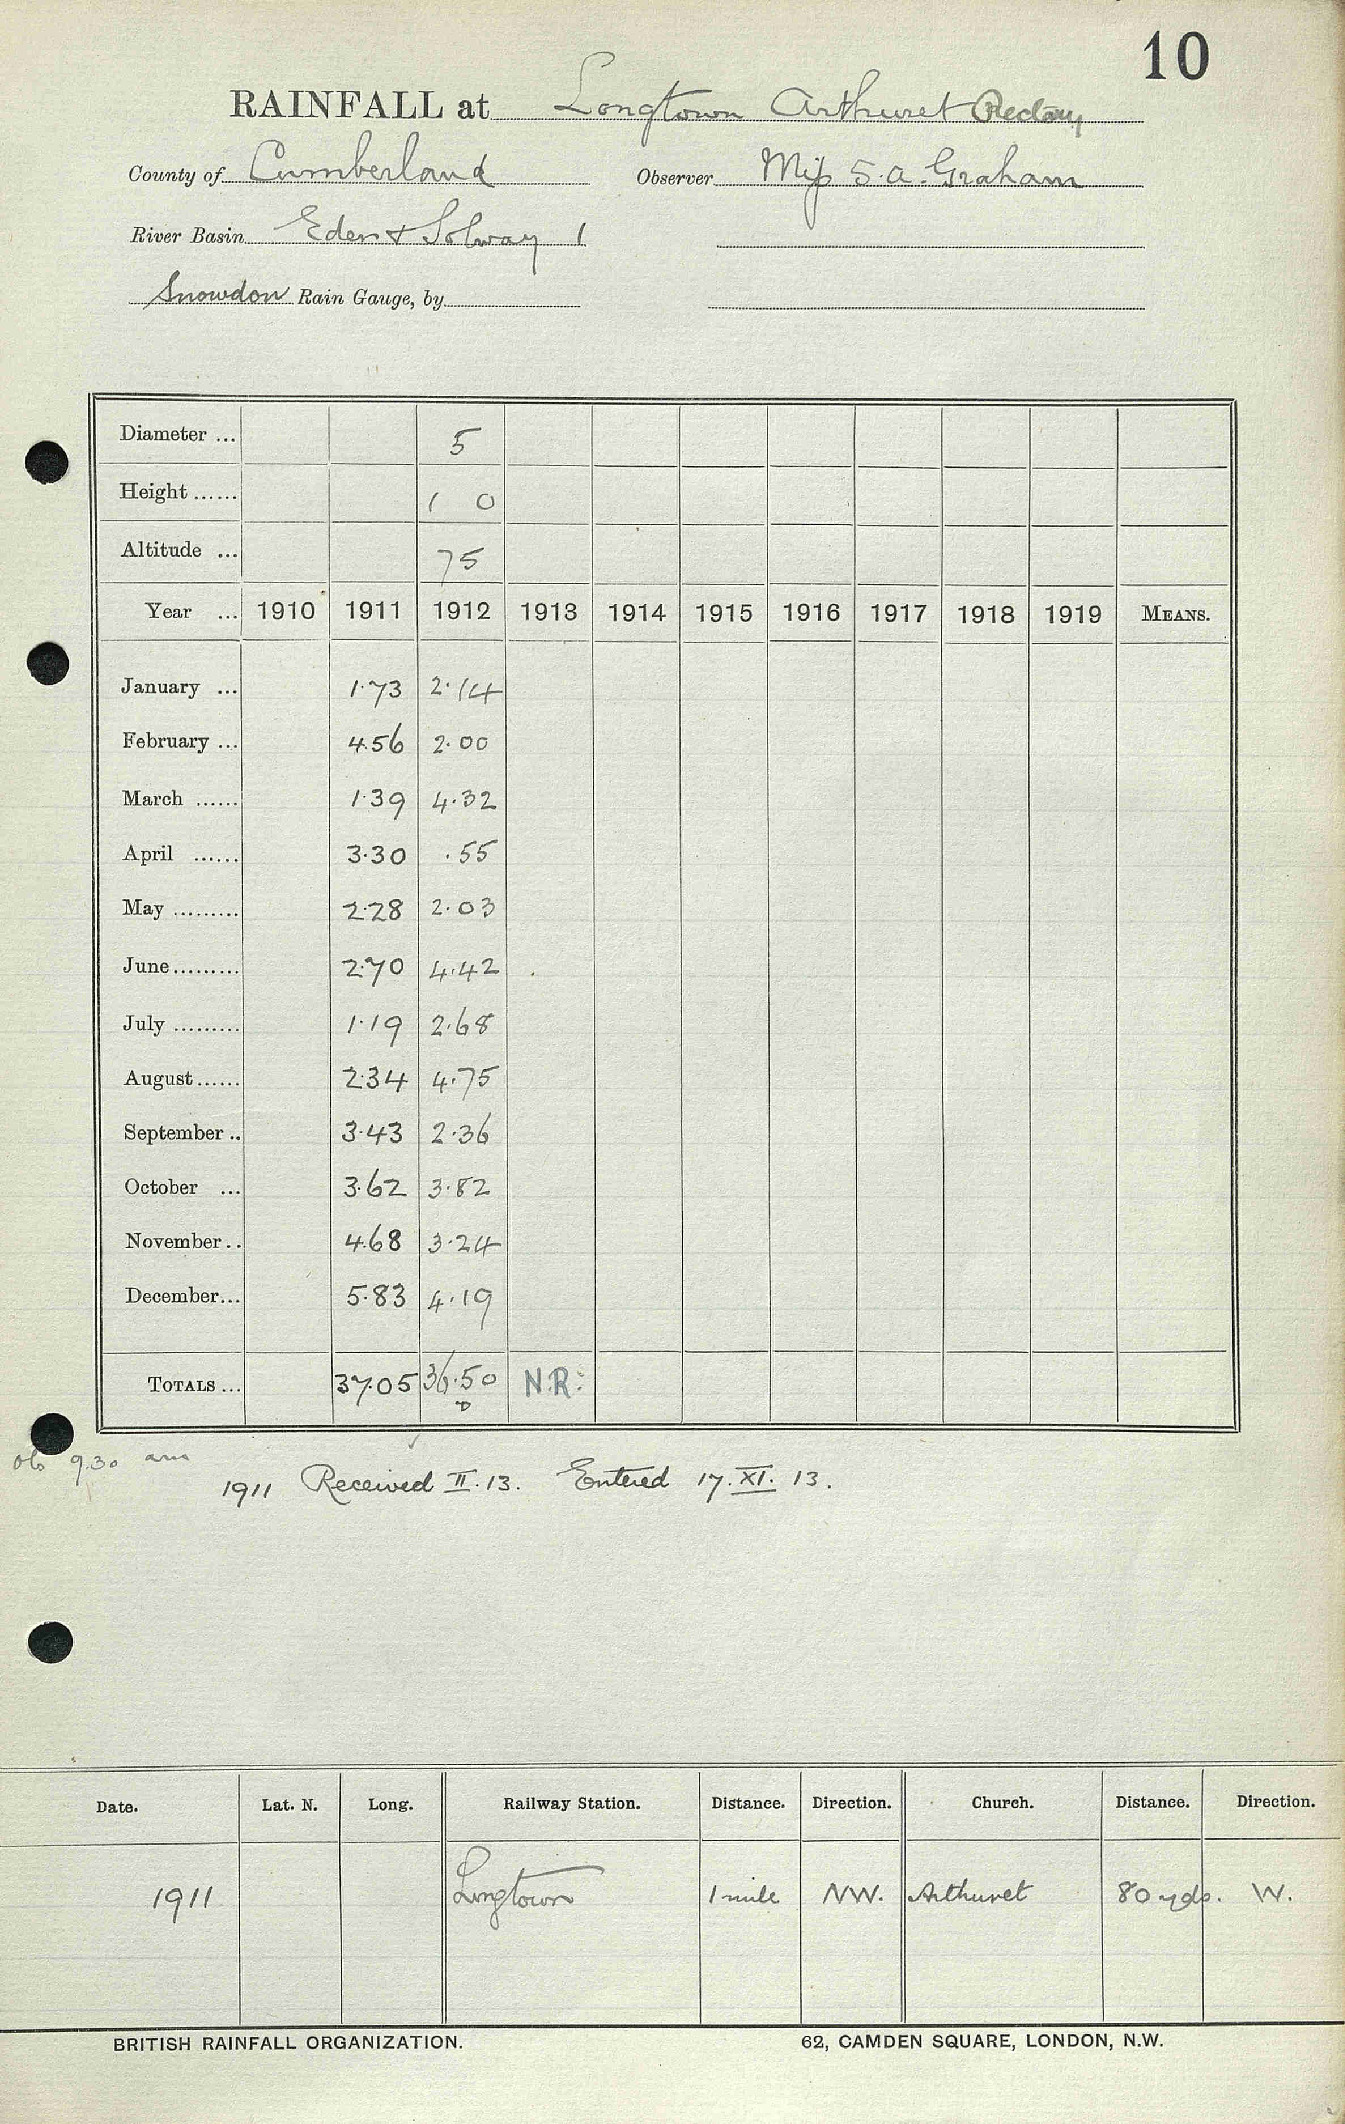 10
RAINFALL at Longtown Arthuret Rectory
County of Cumberland Observer Miss S. A. Graham
River Basin Eden & Solway 1
Snowdon Rain Gauge, by
Diameter ... 5
Height ...... 1 0
Altitude ... 75
Year ... 1910 1911 1912 1913 1914 1915 1916 1917 1918 1919 MEANS.
January ... 1.73 2.14
February ... 4.56 2.00
March ...... 1.39 4.32
April ...... 3.30 .55
May ......... 2.28 2.03
June ......... 2.70 4.42
July ......... 1.19 2.68
August ...... 2.34 4.75
September .. 3.43 2.36
October ... 3.62 3.82
November .. 4.68 3.24
December ... 5.83 4.19
TOTALS ... 37.05 36.50 N.R.
9.30 am
1911 Received II.13. Entered 17.XI.13.
Date. Lat. N. Long. Railway Station. Distance. Direction. Church. Distance. Direction.
1911 Longtown 1 mile NW. Arthuret 80 yds. W.
BRITISH RAINFALL ORGANIZATION. 62, CAMDEN SQUARE, LONDON, N.W.